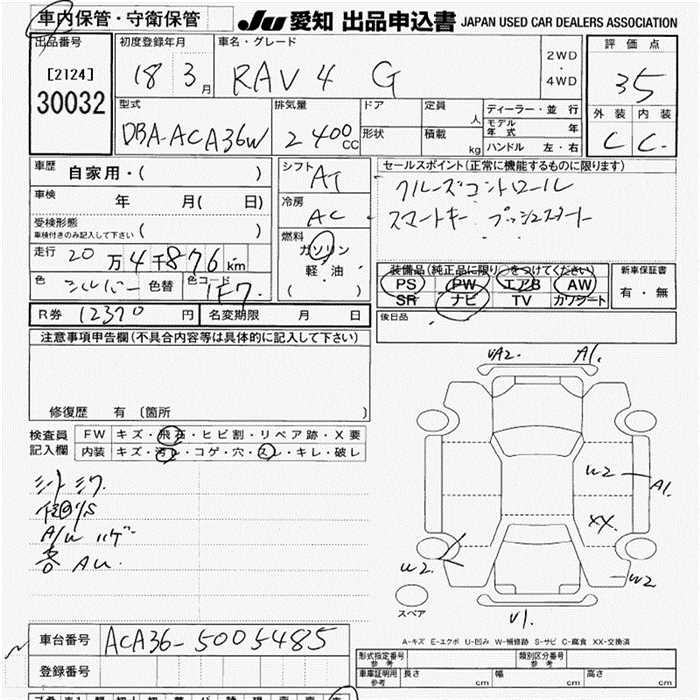 車内保管・守衛保管 JU 愛知 出品申込書 JAPAN USED CAR DEALERS ASSOCIATION
出品番号 初度登録年月 車名・グレード 2WD・4WD 評価点
[2124] 18 3月 RAV4 G 35
30032
型式 排気量 ドア 定員 人 ディーラー・並行 外装 内装
DBA-ACA36W 2400CC 形状 積載 kg モデル年式 年 C C-
ハンドル 左・右
車歴 自家用・( ) シフト AT セールスポイント(正常に機能するものに限ります)
車検 年 月( 日) 冷房 AC クルーズコントロール
受検形態 スマートキー プッシュスタート
車検付きのみ記入して下さい ( )
走行 20万4千876km 燃料 ガソリン
軽・油
( )
色 シルバー 色替 色コード 1F7
装備品(純正品に限り○をつけてください) 新車保証書
PS PW エアB AW 有・無
SR ナビ TV カワシート
R券 12370円 名変期限 月 日 後日品
注意事項申告欄(不具合内容等は具体的に記入して下さい)
修復歴 有 〔箇所
検査員 FW キズ・飛石・ヒビ割・リペア跡・X要
記入欄 内装 キズ・汚レ・コゲ・穴・スレ・キレ・破レ
シートシワ
A/W ハゲ
AU.
UA2. A1.
W2 A1.
XX.
W2. W2
U1.
スペア
A-キズ E-エクボ U-凹み W-補修跡 S-サビ C-腐食 XX-交換済
車台番号 ACA36-5005485
登録番号
形式指定番号 参考 類別区分番号 参考
車庫証明用 参考 長さ cm 幅 cm 高さ cm